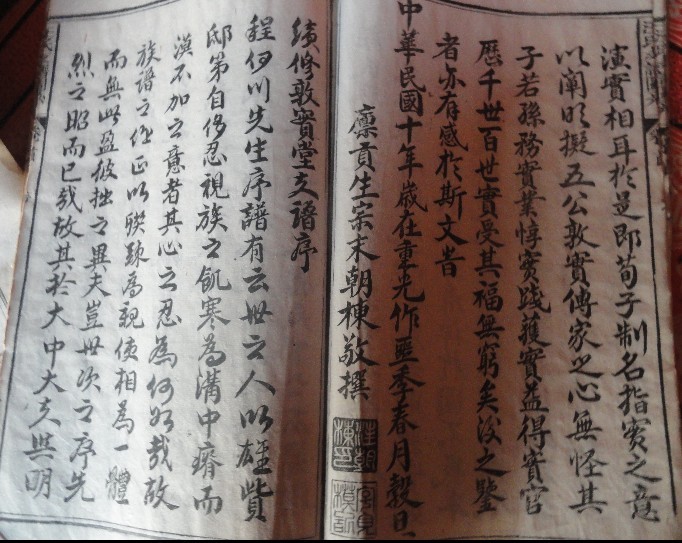 演實相耳於是即荀子制名指實之意
以闡明擬五公敦實傳家之心無怪其
子若孫務實業惇實踐獲實益得實官
歷千世百世實受其福無窮矣後之鑒
者亦有感於斯文昔
中華民國十年歲在重光作噩季春月穀旦
廩貢生宗末朝棟敬撰
汪朝棟印
續修敦實堂支譜序
程伊川先生序譜有云世之人以雄貲
邸第自侈忍視族之飢寒為溝中瘠而
漠不加之意者其心之忍為何如哉故
族譜之作正以聯疎為親使相為一體
而無此盈彼拙之異夫豈世次之序先
烈之昭而已哉故其於大中大夫與明